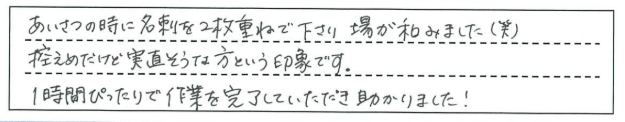 あいさつの時に名刺を2枚重ねで下さり 場が和みました(笑)
控えめだけど実直そうな方という印象です。
1時間ぴったりで作業を完了していただき助かりました!